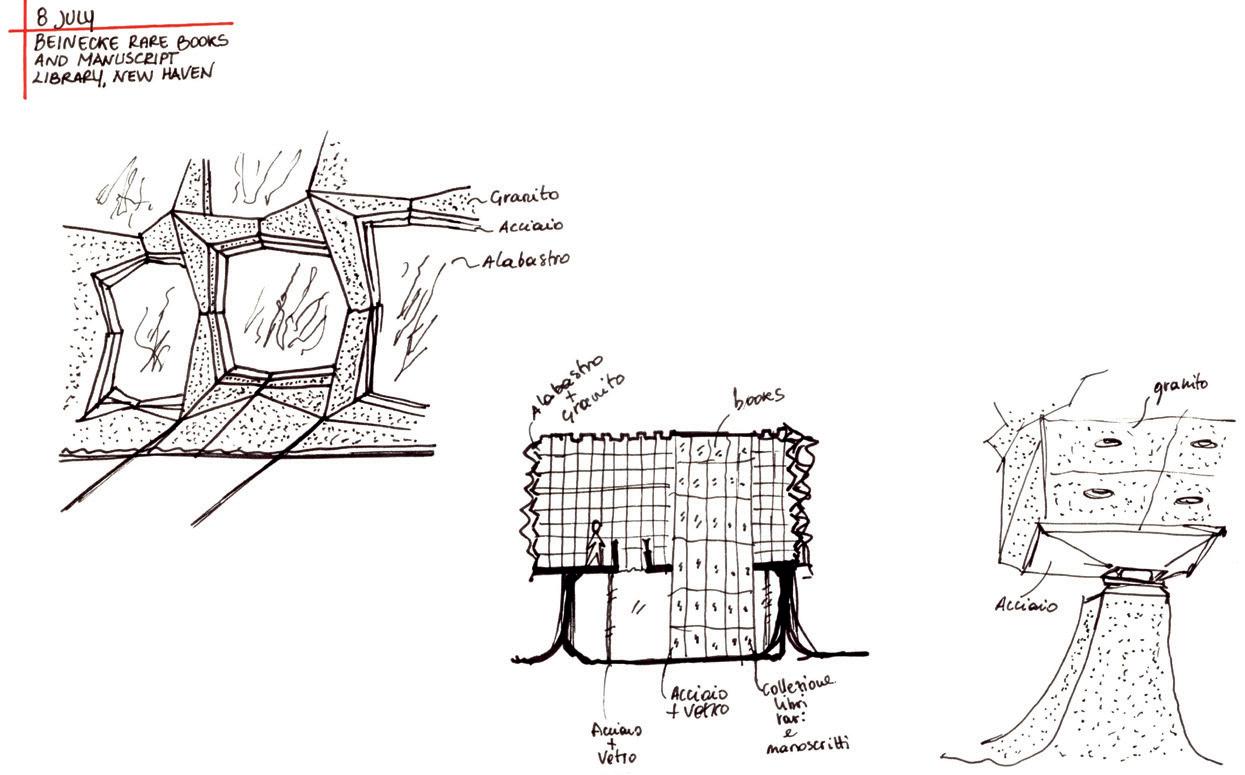 8 JULY
BEINECKE RARE BOOKS
AND MANUSCRIPT
LIBRARY, NEW HAVEN
Granito
Acciaio
Alabastro
Alabastro
+
Granito
books
Acciaio
+
Vetro
Acciaio
+ Vetro
Collezione
libri
rari
e
manoscritti
granito
Acciaio